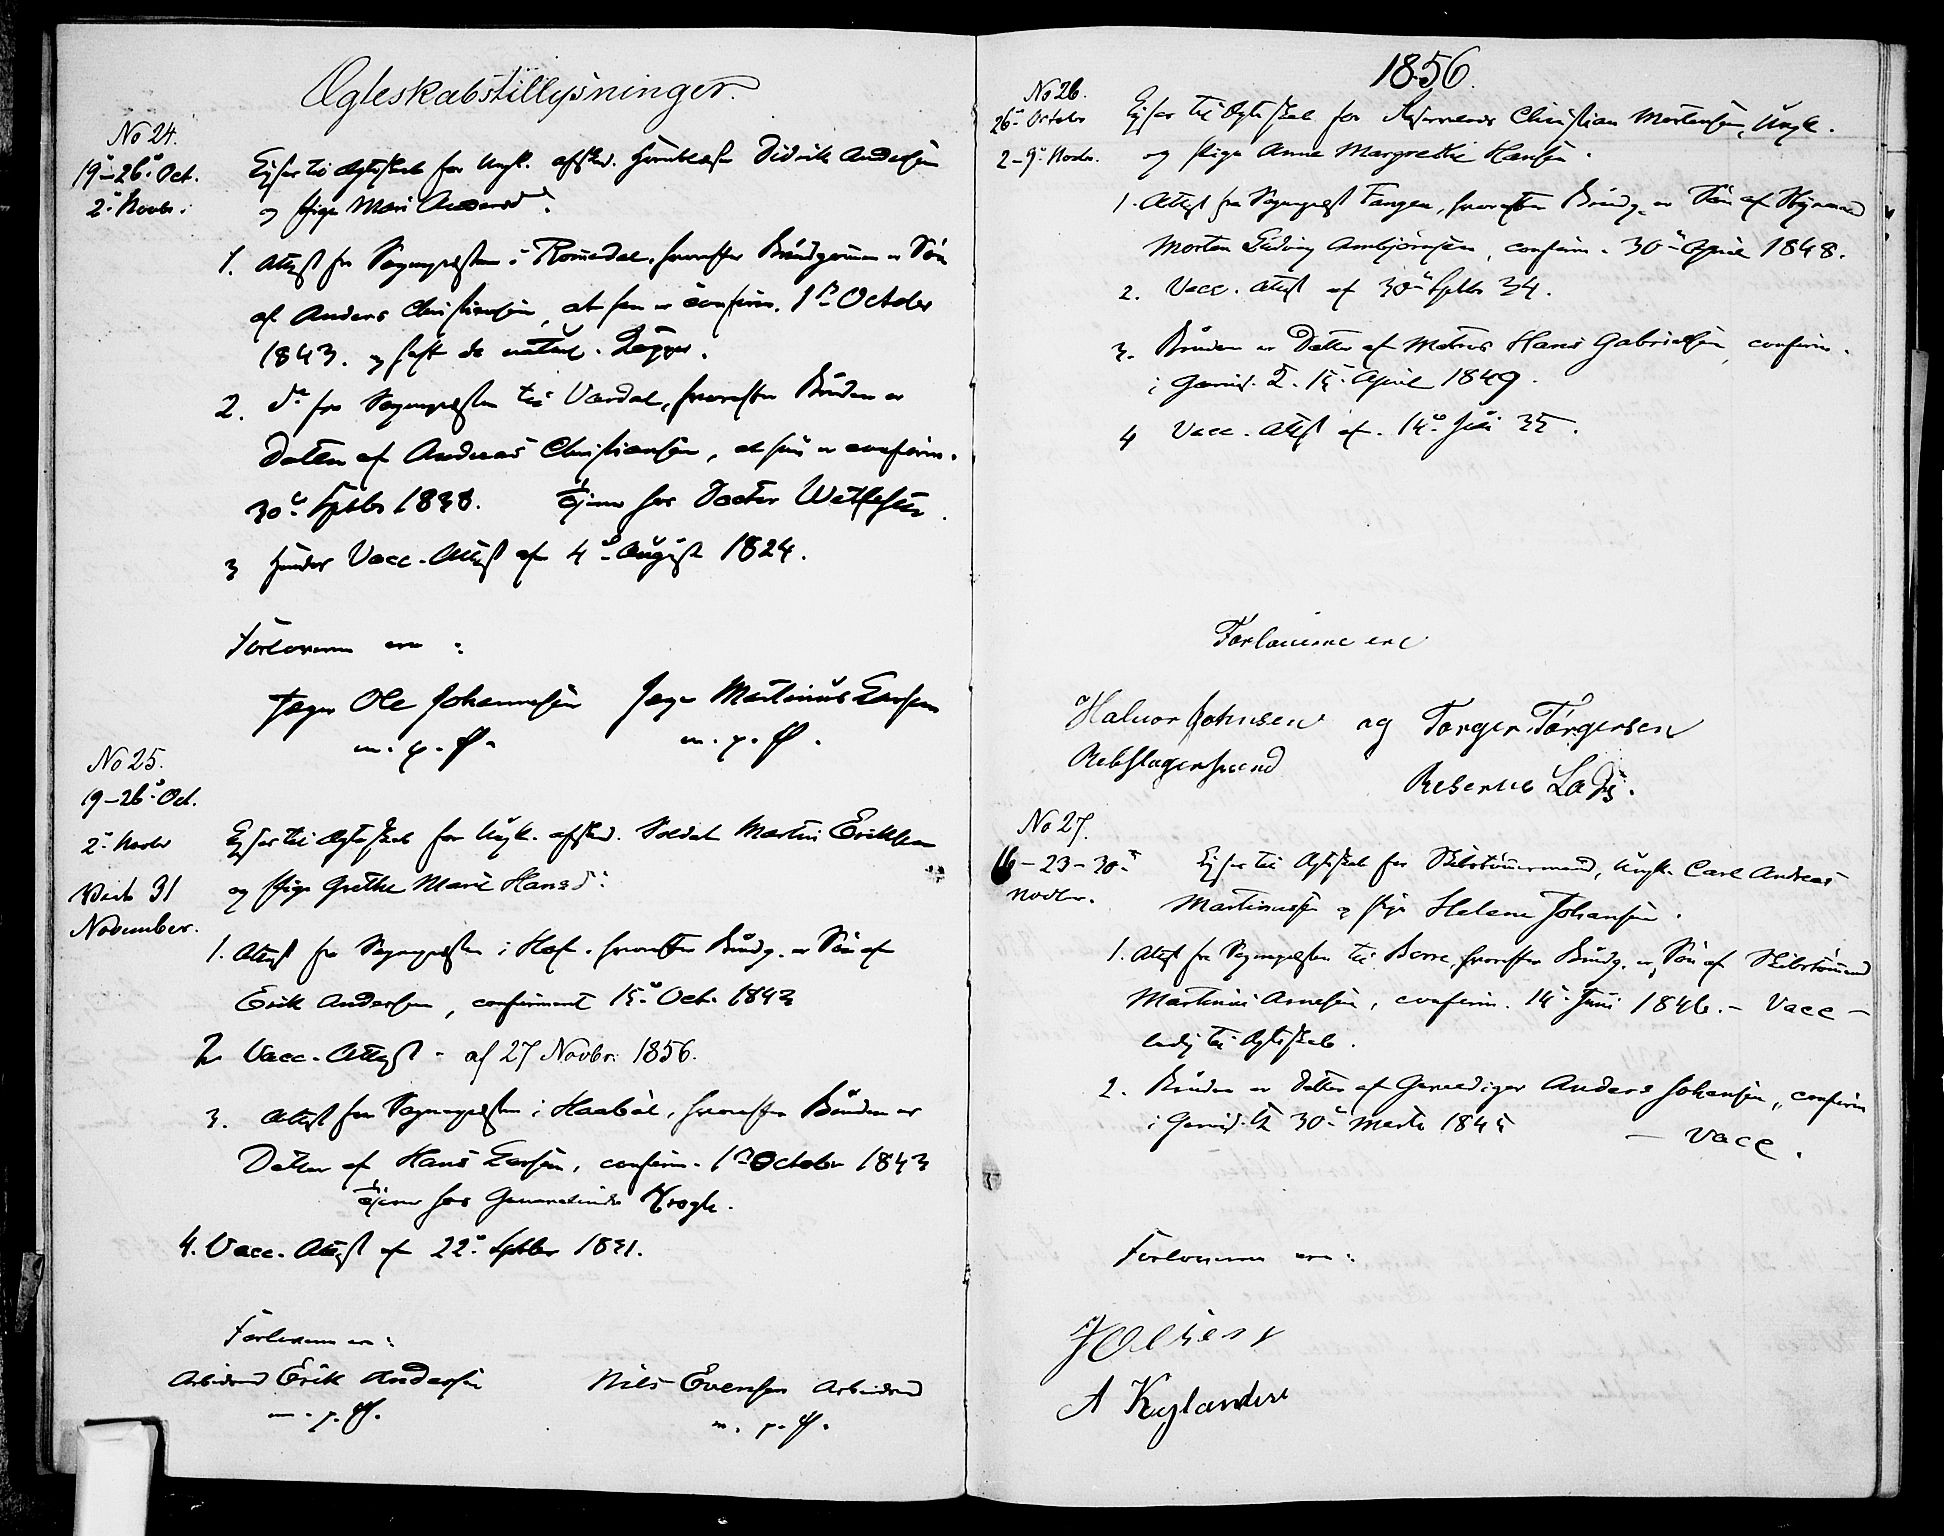 Ægteskabstillysninger.
No 24.
19-26 Oct.
2 Novbr.
til Ægteskab for Ungk. afsked. Didrik Andersen
og Pige Mari Andersd.
1. Attest fra Sognepræsten i Romedal, hvorefter Brudgommen er Søn
af Anders Christiansen, at han er confirm. 1ste October
1843. og haft de naturl. Kopper.
2. do fra Sognepræsten til Vardal, hvorefter Bruden er
Datter af Andreas Christiansen, at hun er confirm.
30 Septbr 1838. tjener hos Doctor
3 hendes Vacc. Attest af 4 August 1824.
Forloverne ere:
Jæger Ole Johannesen Jæger Martinus Larsen
m. p. P. m. p. P.
No 25.
19-26 Oct.
2 Novbr
Viet 31
November.
til Ægteskab for Ungk. afsked. Soldat Martin Eriksen
og Pige Grethe Marie Hansd.
1. Attest fra Sognepræsten i Hof, hvorefter Brudg. er Søn af
Erik Andersen, confirmeret 15 Oct. 1843
2 Vacc. Attest - af 27 Novbr. 1856.
3. Attest fra Sognepræsten i Haabøl, hvorefter Bruden er
Datter af Hans Larsen, confirm. 1ste October 1843
tjener hos Generalinde Krogh.
4. Vacc. Attest af 22 Septbr 1831.
Forloverne ere:
Arbeidsmd Erik Andersen Nils Evensen Arbeidsmd
m. p. P. m. p. P.
1856.
No 26.
26 Octobr
2-9 Novbr.
til Ægteskab for Christian Mortensen, Ungk.
og Pige Anne Margrethe Hansen.
1. Attest fra Sognepræst Fangen, hvorefter Brudg. er Søn af
Morten Arnbjørnsen, confirm. 30 April 1848.
2. Vacc. Attest af 30 Septbr 34.
3. Bruden er Datter af Matros Hans Gabrielsen, confirm.
i Garnis. K. 15 April 1849.
4 Vacc. Attest af 14 Juli 35.
Forloverne ere
Halvor Johnsen og Torger Torgersen
Rebslagersvend Reserve
No 27.
16-23-30
Novbr.
til Ægteskab for Skibstømmermand, Ungk. Carl Andreas
Martinussen og Pige Helene Johansen.
1. Attest fra Sognepræsten til Borre, hvorefter Brudg. er Søn af Skibstømmermd
Martinus Arnesen, confirm. 14 Juni 1846. - Vacc -
ledig til Ægteskab.
2. Bruden er Datter af Anders Johansen, confirm
i Garnis. K 30 Marts 1845 - Vacc.
Forloverne ere:
A Kyllander